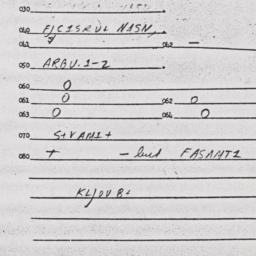 030
040 FICISRUL NASN,
041 042 —
050 ARBU.1-2
060 O
061 O 062 O
063 O 064 O
070 S+VAMI+
080 + - but FASAMT1
KLJOVB+